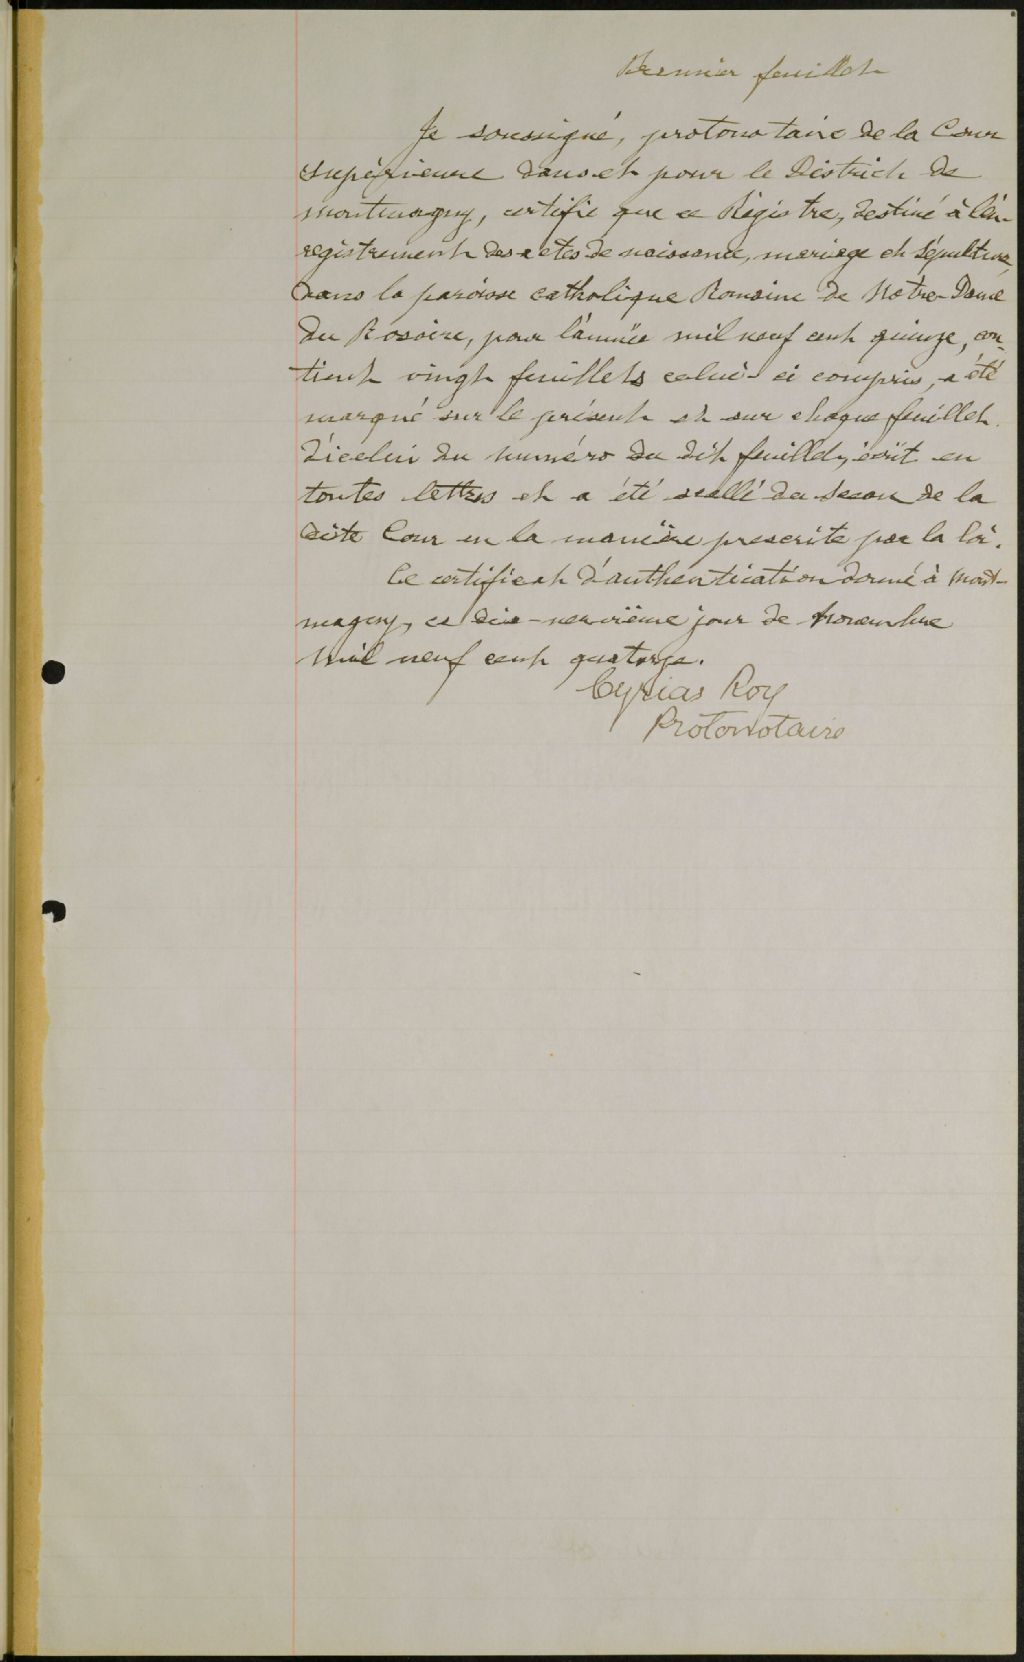 Premier feuillet
Je soussigné, protonotaire de la Cour
Supérieure dans et pour le District de
Montmagny, certifie que ce Régistre, destiné à l'en-
registrement des actes de naissance, mariage et sépulture,
dans la paroisse catholique Romaine de Notre-Dame
du Rosaire, pour l'année mil neuf cent quinze, con-
tient vingt feuillets celui-ci compris, a été
marqué sur le présent et sur chaque feuillet
d'icelui du numéro du dit feuillet, écrit en
toutes lettres et a été scellé du sceau de la
dite Cour en la manière prescrite par la loi.
Ce certificat d'authentication donné à Mont-
magny, ce dix-neuvième jour de Novembre
mil neuf cent quatorze.
Cyrias Roy
Protonotaire